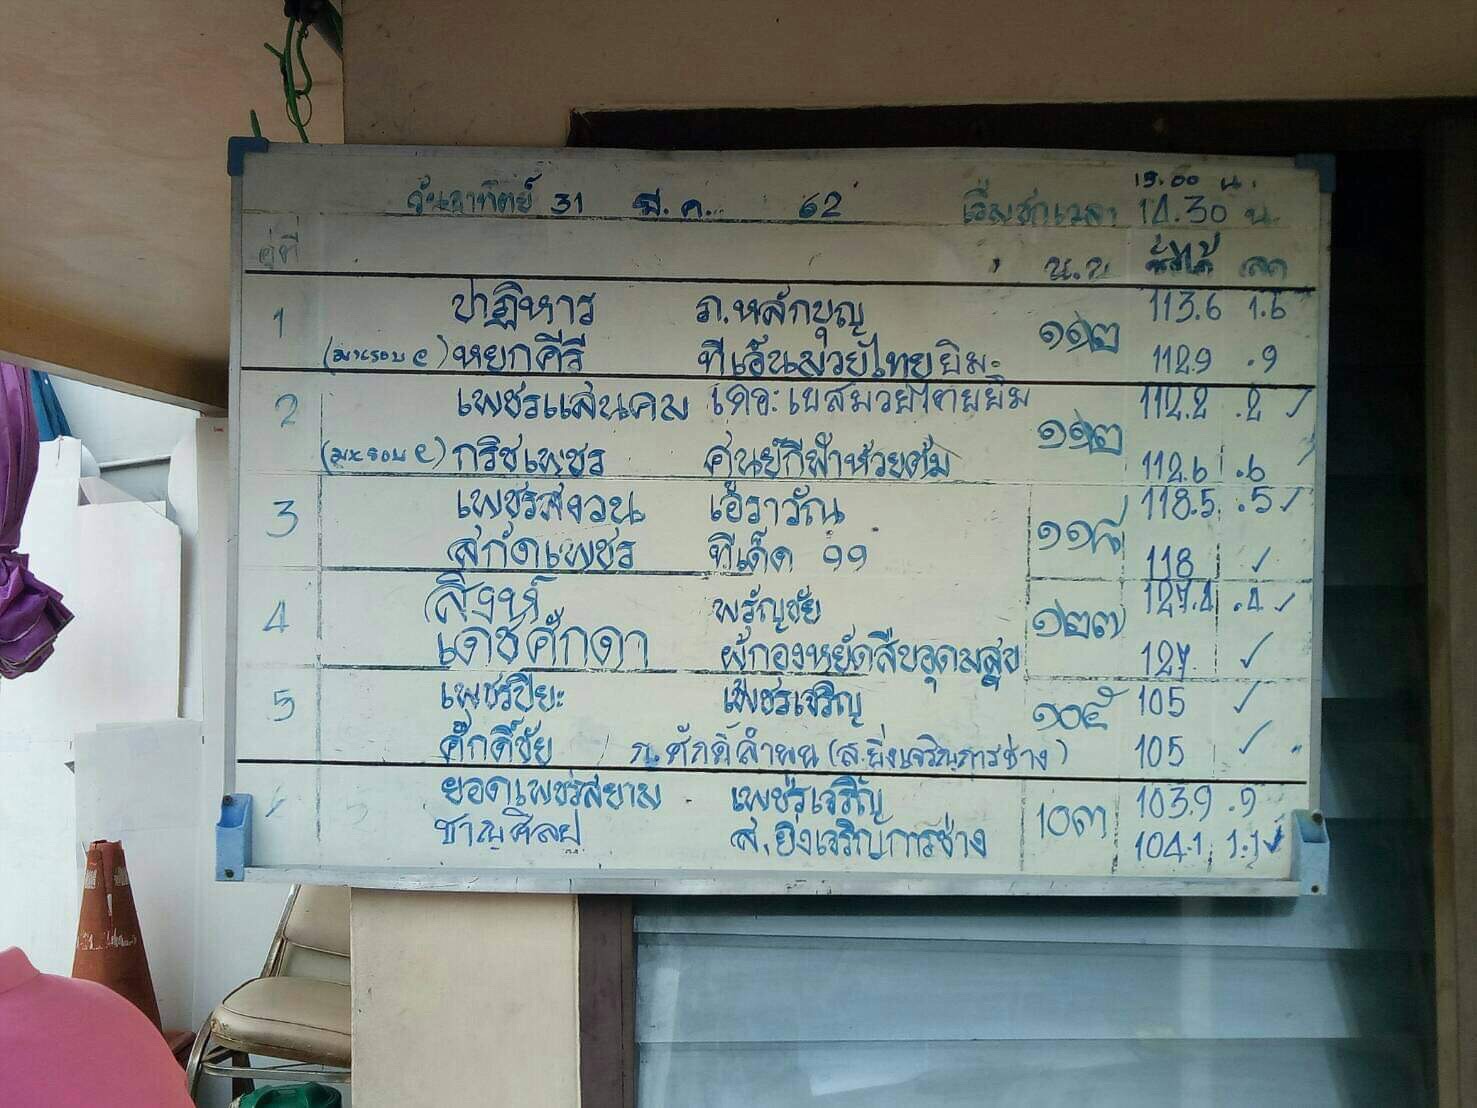 15.00 น.
วันอาทิตย์ 31 มี.ค. 62 เริ่มชกเวลา 14.30 น.
คู่ที่ น.น ชั่งได้ ลด
1 ปาฏิหาร ภ.หลักบุญ ๑๑๒ 113.6 1.6
(มวยรอบ ๔) หยกคีรี ทีเอ็นมวยไทยยิม 112.9 .9
2 เพชรแสนคม เดอะเบสมวยไทยยิม ๑๑๒ 112.2 .2 ✓
(มวยรอบ ๔) กริชเพชร ศูนย์กีฬาห้วยต้ม 112.6 .6
3 เพชรสงวน เอราวัณ ๑๑๘ 118.5 .5 ✓
สกัดเพชร ทีเด็ด 99 118 ✓
4 สิงห์ พรัญชัย ๑๒๗ 127.4 .4 ✓
เดชศักดา ผู้กองหยัดสืบอุดมสุข 127 ✓
5 เพชรปิยะ เพชรเจริญ ๑๐๕ 105 ✓
ศักดิ์ชัย ภ.ศักดิ์ลำพูน (ส.ยิ่งเจริญการช่าง) 105 ✓
ยอดเพชรสยาม เพชรเจริญ 10๓ 103.9 .9
ชาญศิลป ส.ยิ่งเจริญการช่าง 104.1 1.1 ✓